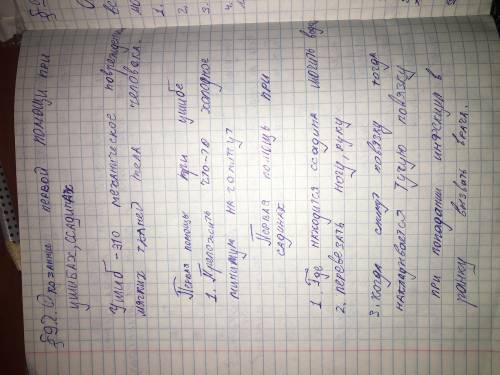 §92. Оказание первой помощи при
ушибах, ссадинах
Ушиб - это механическое повреждение
мягких тканей тела человека.
Первая помощь при ушибе
1. Приложить что-то холодное
минимум на 20 минут
Первая помощь при
садинах
1. Где находится ссадина мочить
2. перевезать ногу, руку
3. когда снимут повязку тогда
накладывается тугую повязку
при попадании инфекции в
ранку вызвать врача.